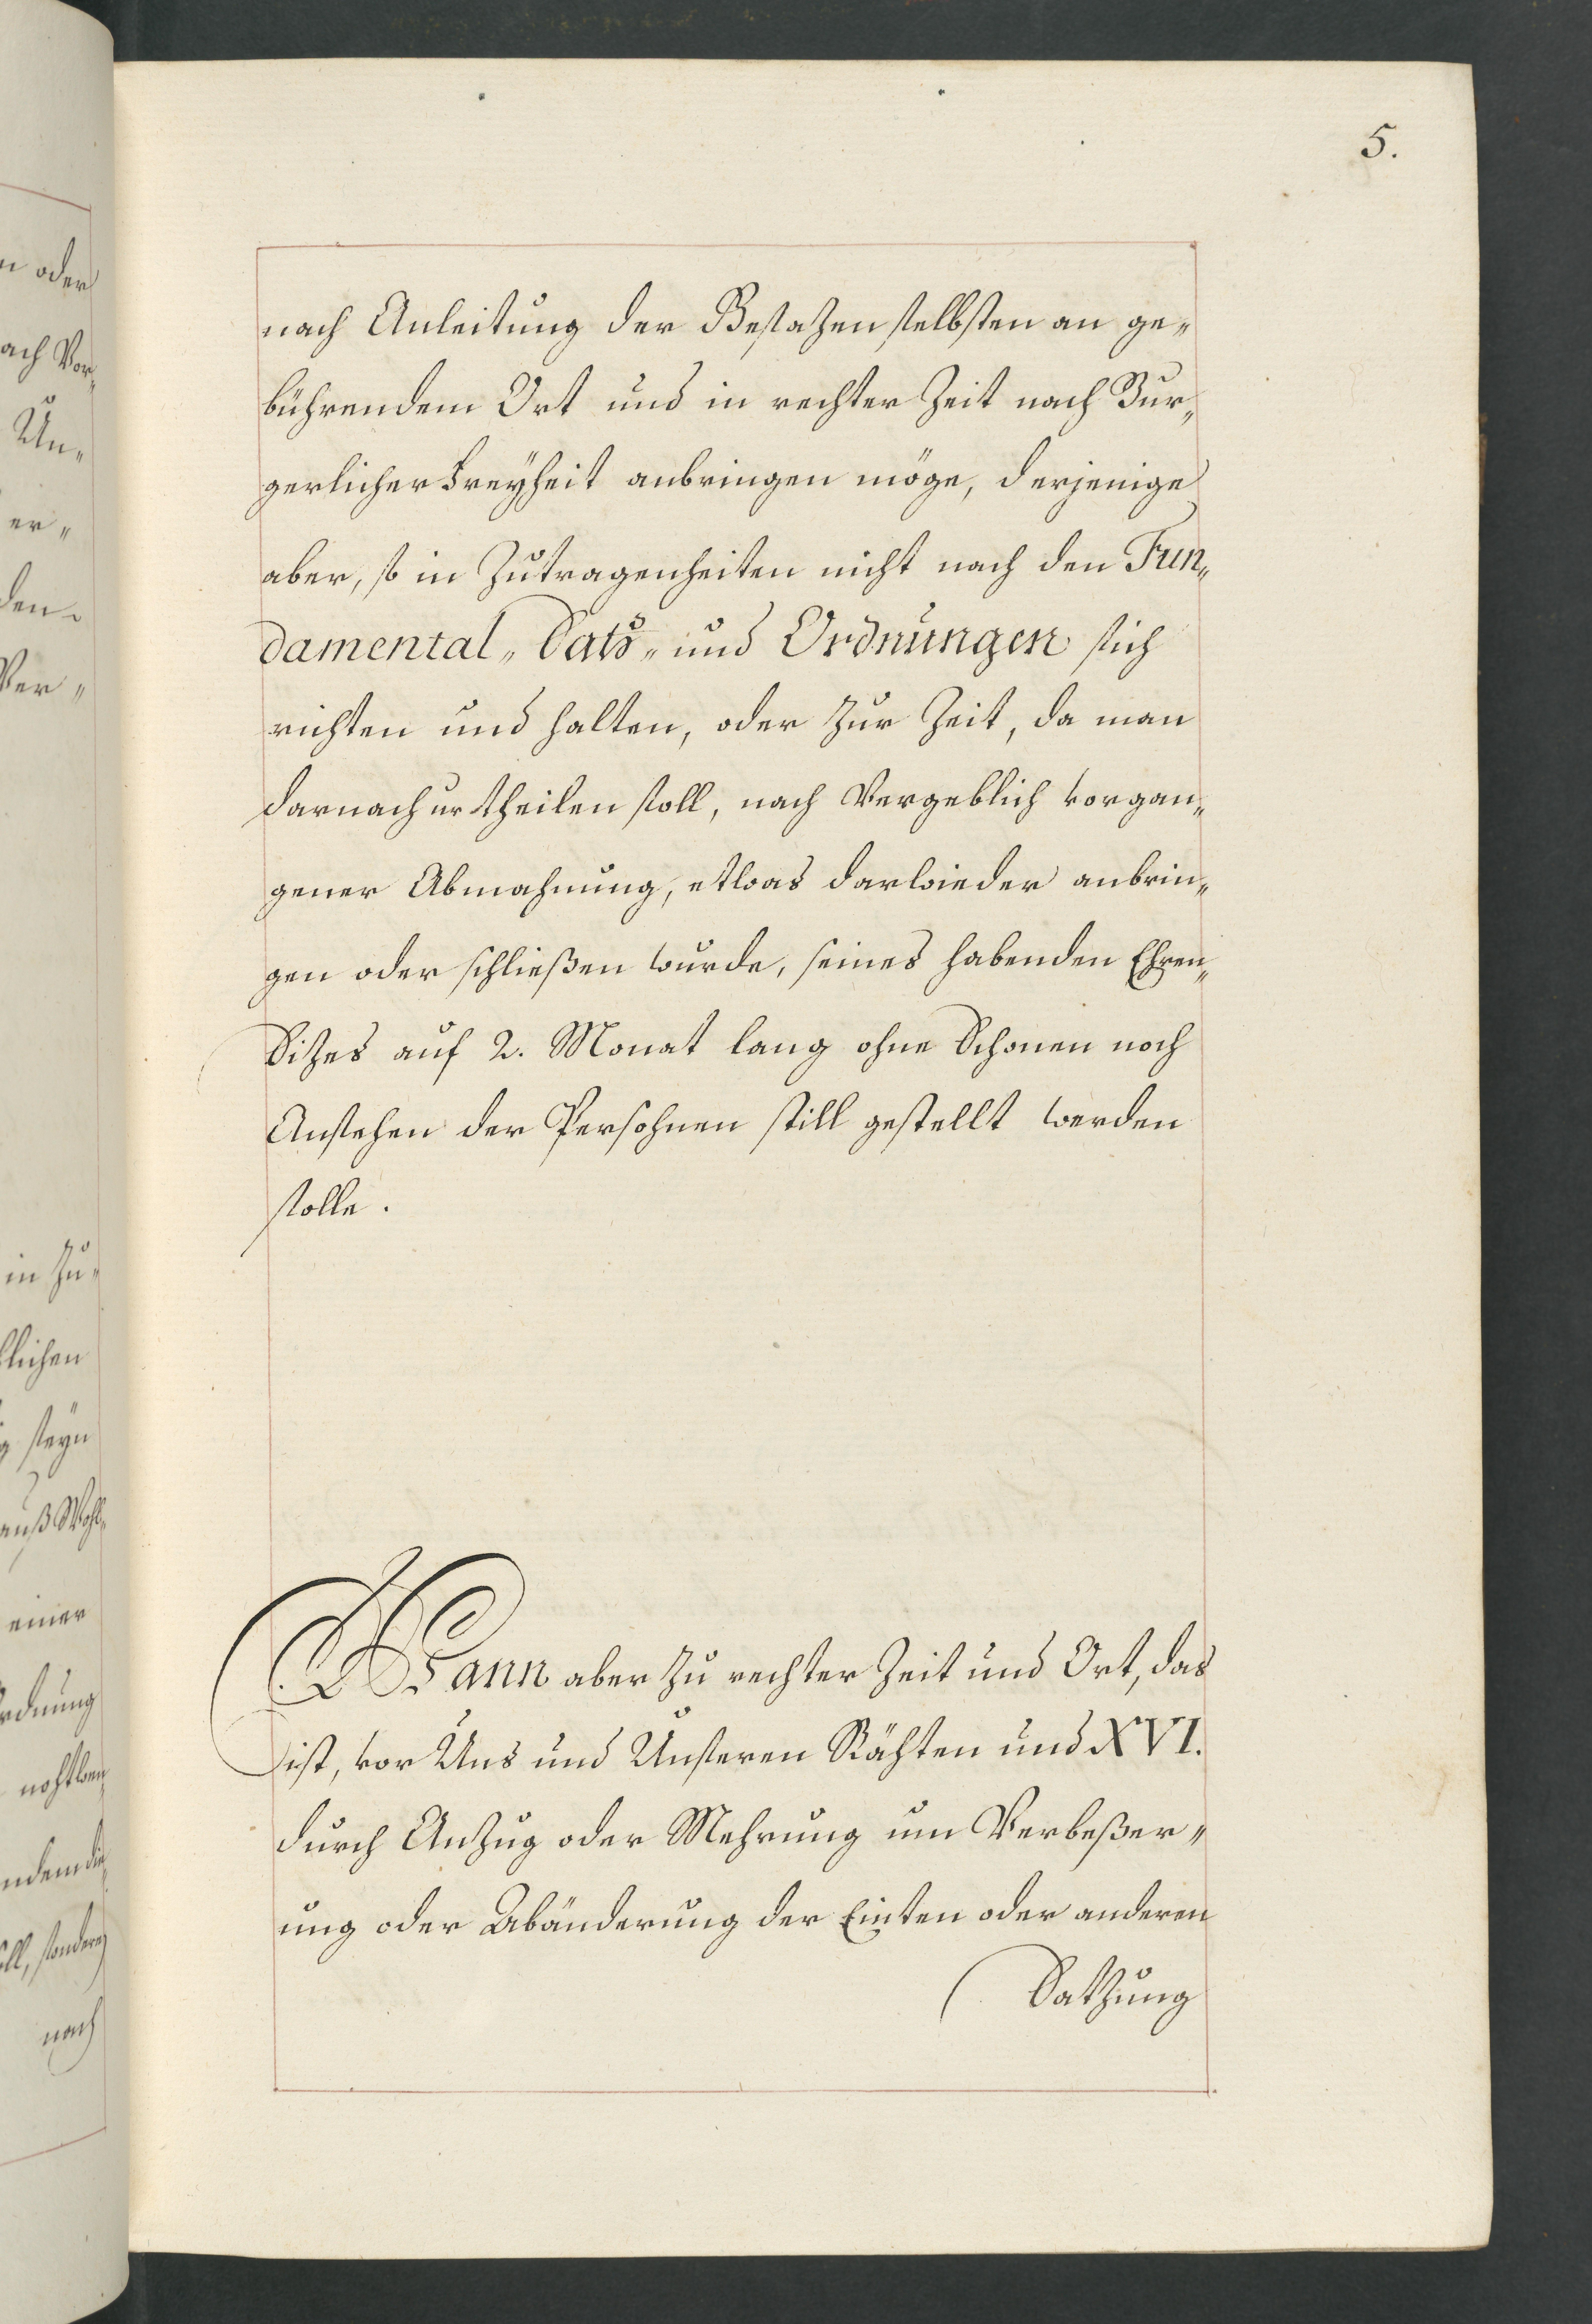 5.
nach Anleitung der Gesatzen selbsten an ge„
bührendem Ort und in rechter Zeit nach Bur„
gerlicher Freyheit anbringen möge, derjenige
aber, so in Zutragenheiten nicht nach den Fun„
damental„ Satz„ und Ordnungen sich
richten und halten, oder zur Zeit, da man
darnach urtheilen soll, nach Vergeblich vorgan„
gener Abmahnung, etwas darwieder anbrin„
gen oder schließen wurde, seines habenden Ehren„
Sitzes auf 2. Monat lang ohne Schonen noch
Ansehen der Persohnen still gestellt werden
solle.
Wann aber zu rechter Zeit und Ort, das
ist, vor Uns und Unseren Rähten und XVI.
durch Anzug oder Mehrung um Verbeßer„
ung oder Abänderung der Einten oder anderen
Satzung